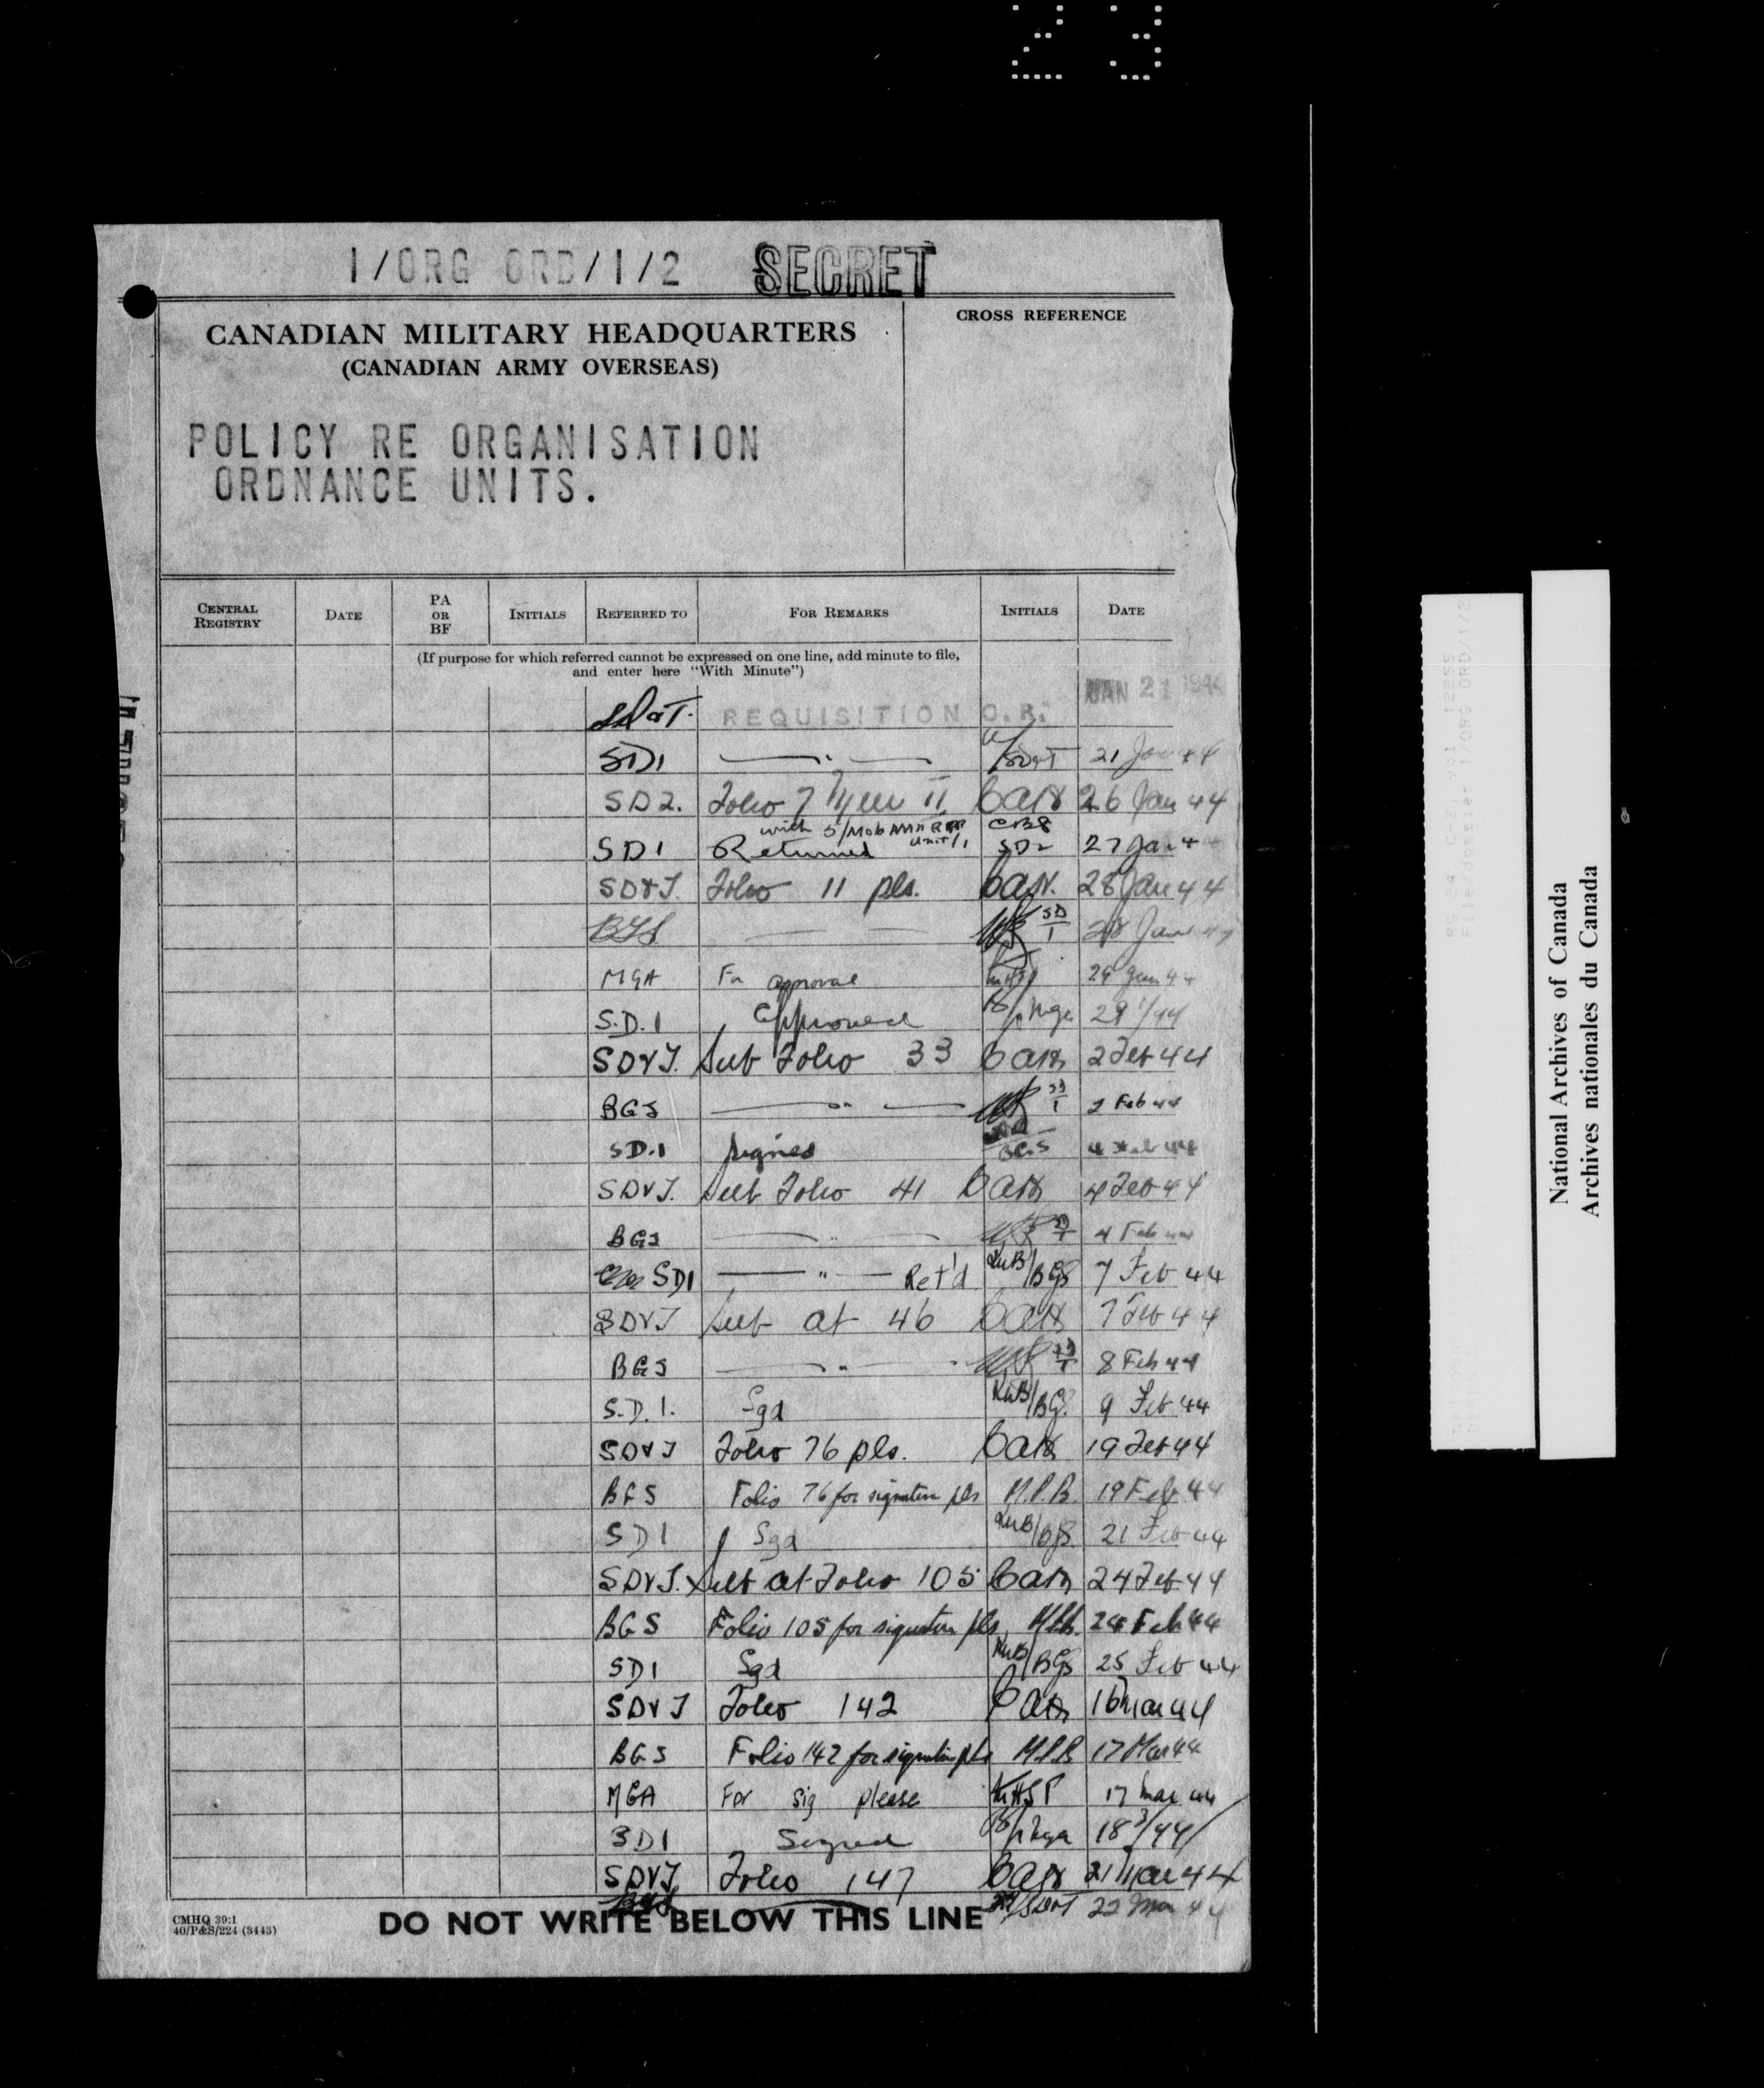 23
1/ORG ORD/1/2 SECRET
CANADIAN MILITARY HEADQUARTERS
(CANADIAN ARMY OVERSEAS)
CROSS REFERENCE
POLICY RE ORGANISATION
ORDNANCE UNITS.
CENTRAL REGISTRY DATE PA OR BF INITIALS REFERRED TO FOR REMARKS INITIALS DATE
(If purpose for which referred cannot be expressed on one line, add minute to file,
and enter here "With Minute")
SD&T. REQUISITION C.R. JAN 21 1944
SD1 — " — SD&T 21 Jan 44
SD2. Folio 7 26 Jan 44
with 5/Mob
SD1 Returned SD2 27 Jan 44
SD&T. Folio 11 pls. 28 Jan 44
BGS — — SD/1 28 Jan 44
MGA For approval 29 Jan 44
S.D.1 Approved 29 1/44
SD&T. Sub Folio 33 2 Feb 44
BGS — " — SD/1 2 Feb 44
SD.1 signed BGS 4 Feb 44
SD&T. Sub Folio 41 4 Feb 44
BGS — " — SD/1 4 Feb 44
SD1 — " — Ret'd BGS 7 Feb 44
SD&T Sub at 46 7 Feb 44
BGS — " — SD/1 8 Feb 44
S.D.1. Sgd BGS 9 Feb 44
SD&T Folio 76 pls. 19 Feb 44
BGS Folio 76 for signature pls M.P.B. 19 Feb 44
SD1 Sgd BGS 21 Feb 44
SD&T. Sub at Folio 105 24 Feb 44
BGS Folio 105 for signature pls 24 Feb 44
SD1 Sgd BGS 25 Feb 44
SD&T Folio 142 16 Mar 44
BGS Folio 142 for signature pls M.P.B 17 Mar 44
MGA For sig please 17 Mar 44
SD1 Signed 18 3/44
SD&T. Folio 147 21 Mar 44
BGS 22 Mar 44
CMHQ 39:1
40/P&S/224 (3443)
DO NOT WRITE BELOW THIS LINE
National Archives of Canada
Archives nationales du Canada